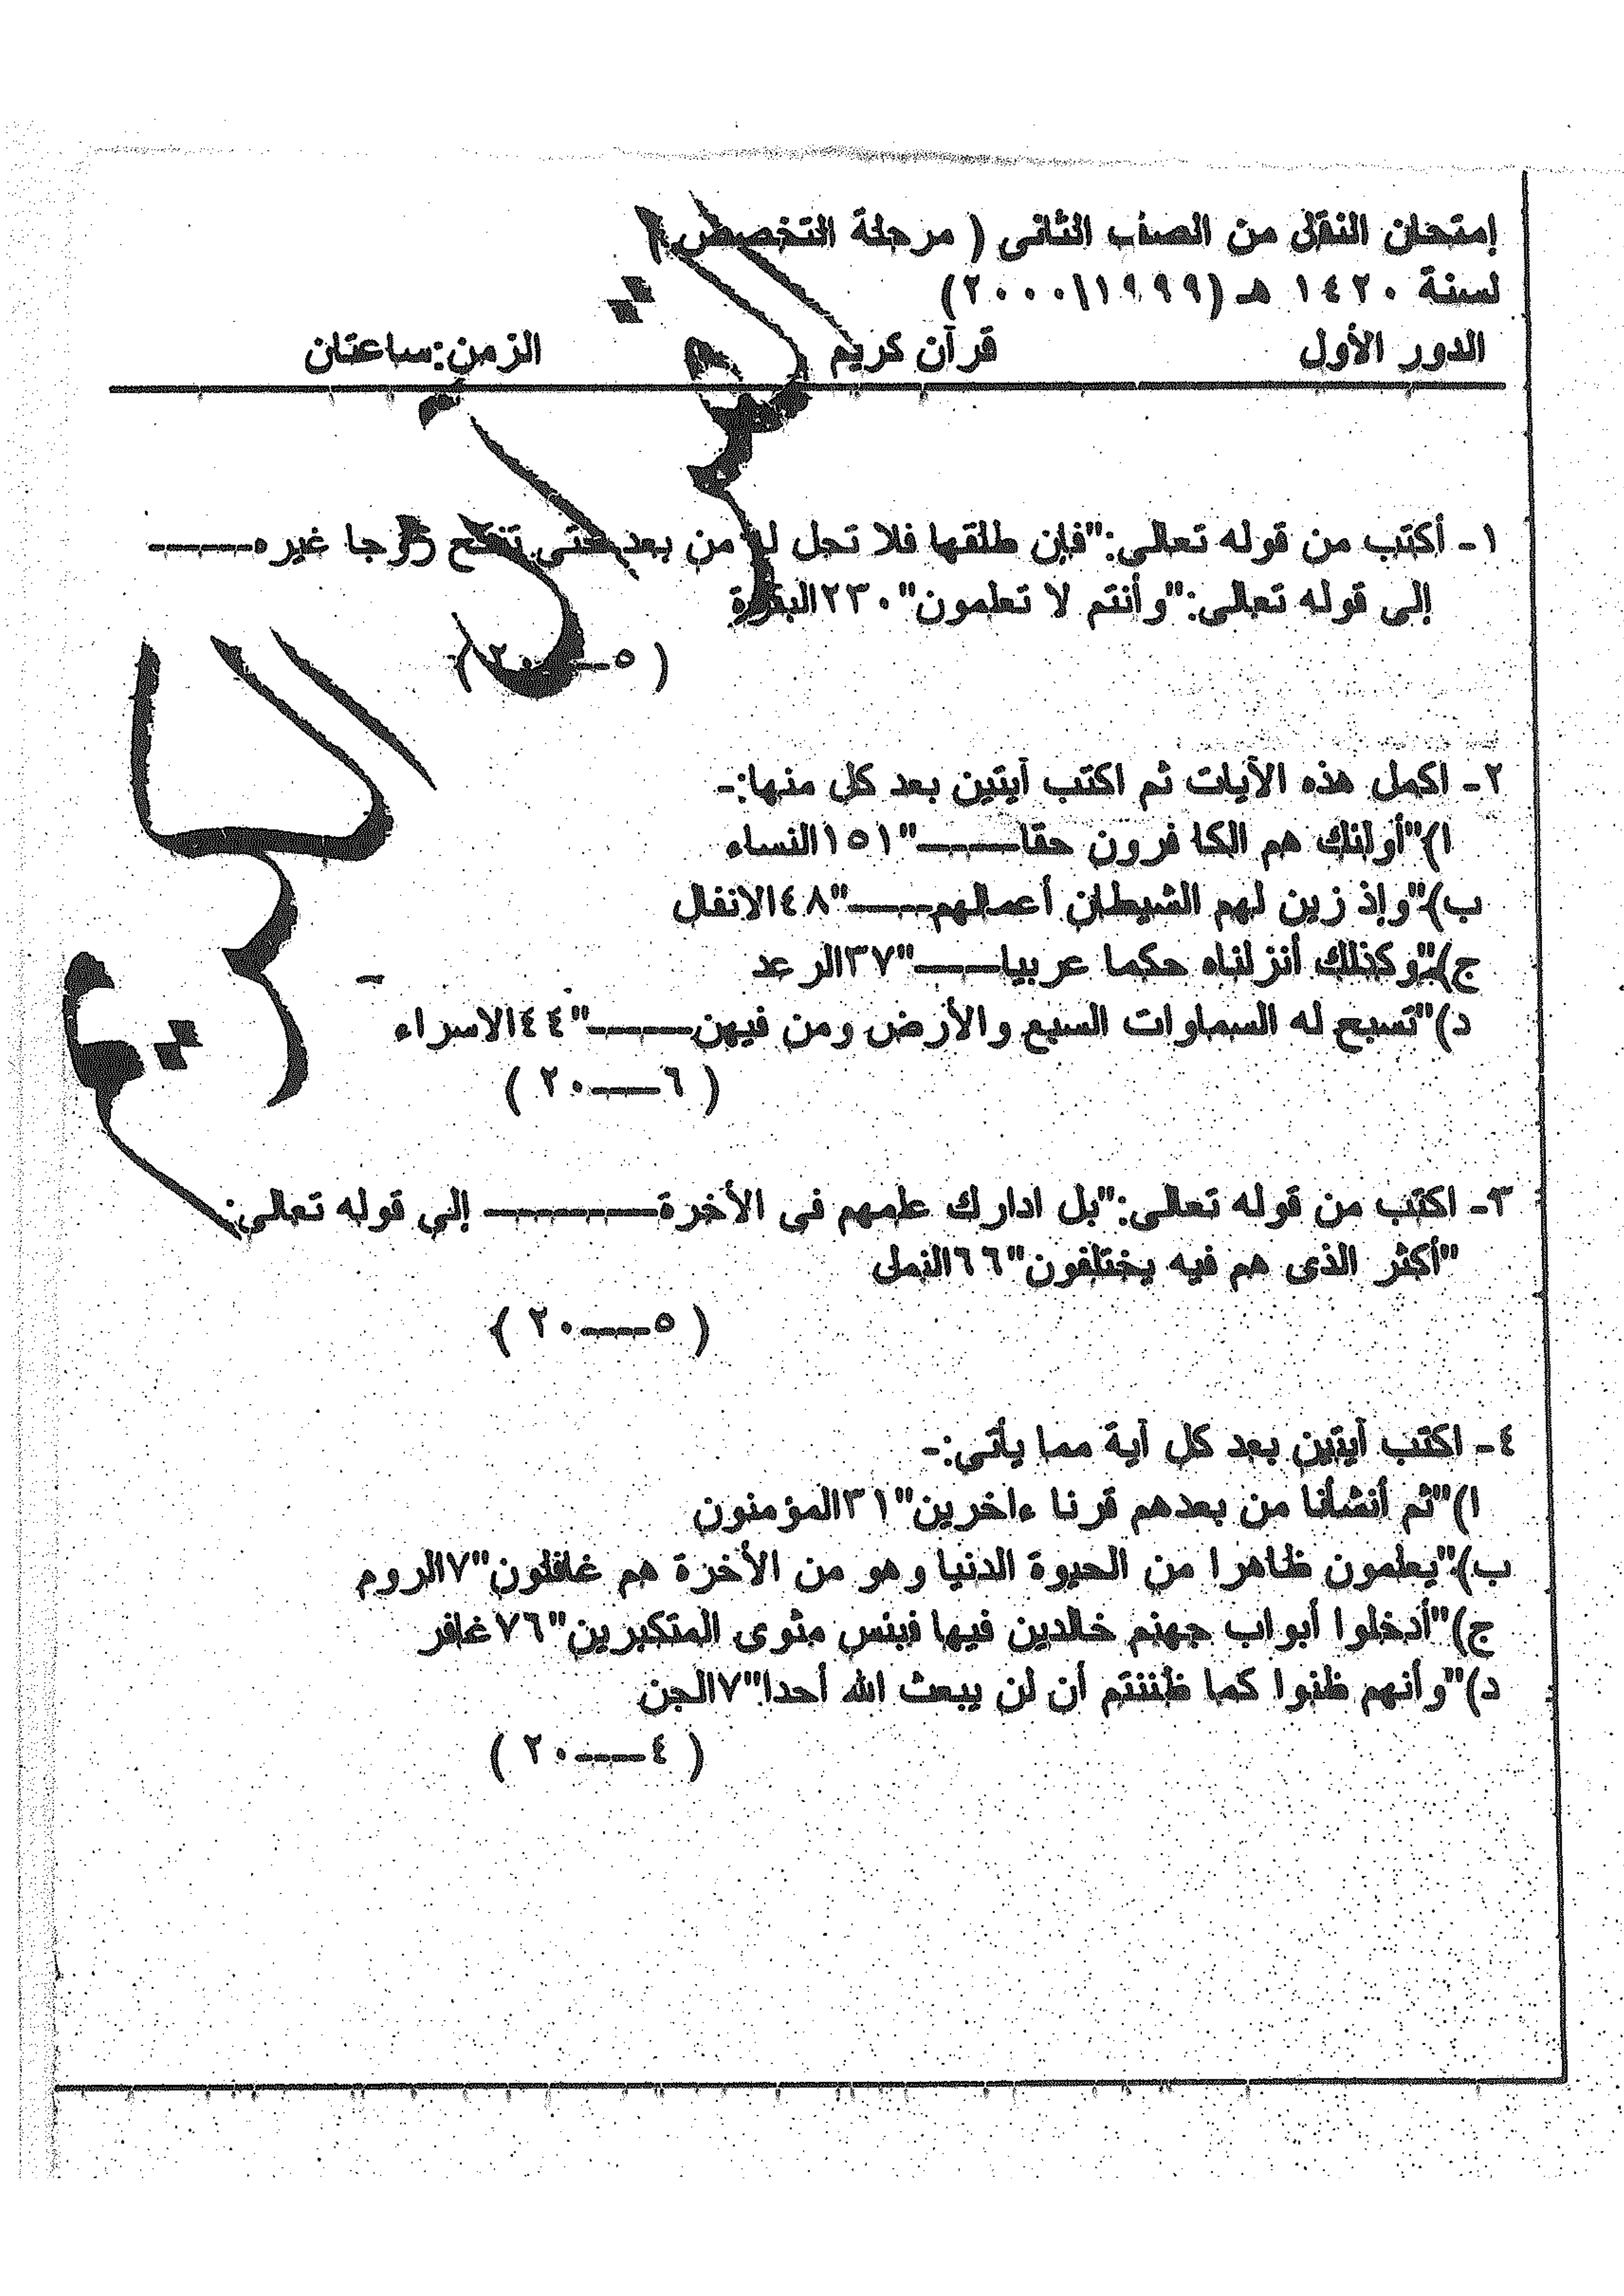 إمتحان النقل من الصف الثانى ( مرحلة التخصص )
لسنة ١٤٢٠ هـ (١٩٩٩\٢٠٠٠)
الدور الأول قرآن كريم الزمن:ساعتان
١- أكتب من قوله تعالى:"فإن طلقها فلا تحل له من بعد حتى تنكح زوجا غيره-----
إلى قوله تعالى:"وأنتم لا تعلمون"٢٣٠البقرة
( ٥----٢٠ )
٢- اكمل هذه الآيات ثم اكتب آيتين بعد كل منها:-
ا)"أولئك هم الكا فرون حقا-----"١٥١النساء
ب)"وإذ زين لهم الشيطان أعمالهم----"٤٨الانفال
ج)"وكذلك أنزلناه حكما عربيا----"٣٧الرعد
د)"تسبح له السماوات السبع والأرض ومن فيهن-----"٤٤الاسراء
( ٦----٢٠ )
٣- اكتب من قوله تعالى:"بل ادارك علمهم فى الأخرة-------- إلي قوله تعالى:
"أكثر الذى هم فيه يختلفون"٦٦النمل
( ٥----٢٠ )
٤- اكتب آيتين بعد كل آية مما يأتي:-
ا)"ثم أنشأنا من بعدهم قرنا ءاخرين"٣١المؤمنون
ب)"يعلمون ظاهرا من الحيوة الدنيا وهو من الأخرة هم غافلون"٧الروم
ج)"أدخلوا أبواب جهنم خالدين فيها فبئس مثوى المتكبرين"٧٦غافر
د)"وأنهم ظنوا كما ظننتم أن لن يبعث الله أحدا"٧الجن
( ٤----٢٠ )